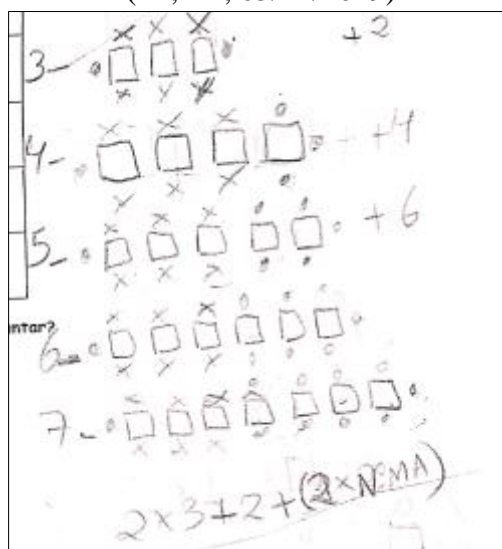 3-
+2
4-
+4
5-
+6
ntar?
6-
7-
2×3+2+(2×NºMA)